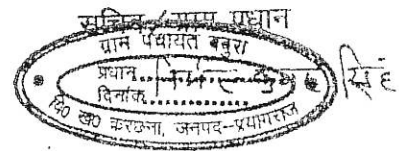 सचिव / ग्राम प्रधान
ग्राम पंचायत बबुरा
प्रधान
सिंह
दिनांक
वि० ख० करछना, जनपद-प्रयागराज